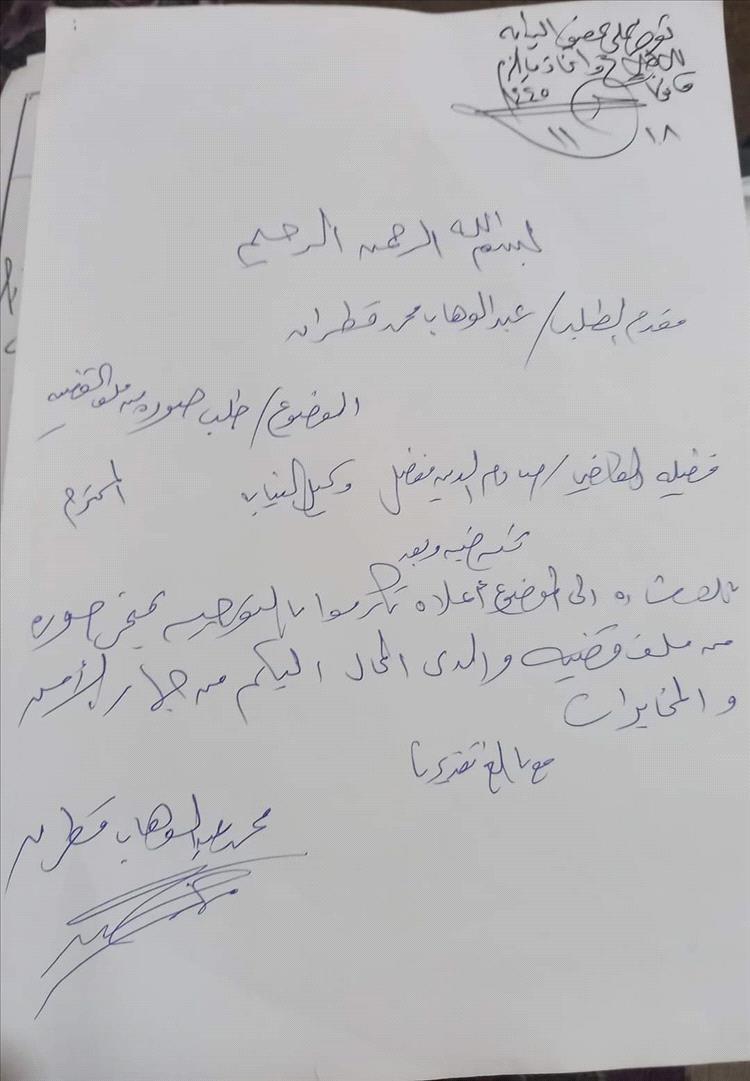 تعرض على عضو النيابة
للاطلاع واتخاذ ما يلزم
قانونا
١٨ ١١
بسم الله الرحمن الرحيم
مقدم الطلب / عبدالوهاب محمد قطران
الموضوع / طلب صوره من ملف القضيه
فضيلة القاضي / صارم الدين مفضل وكيل النيابه المحترم
تحيه طيبه وبعد
بالاشاره الى الموضوع أعلاه تكرموا بالتوجيه بمنحي صوره
من ملف قضيه والدي المحال اليكم من جهاز الأمن
والمخابرات
مع بالغ تقديرنا
محمد عبدالوهاب قطران